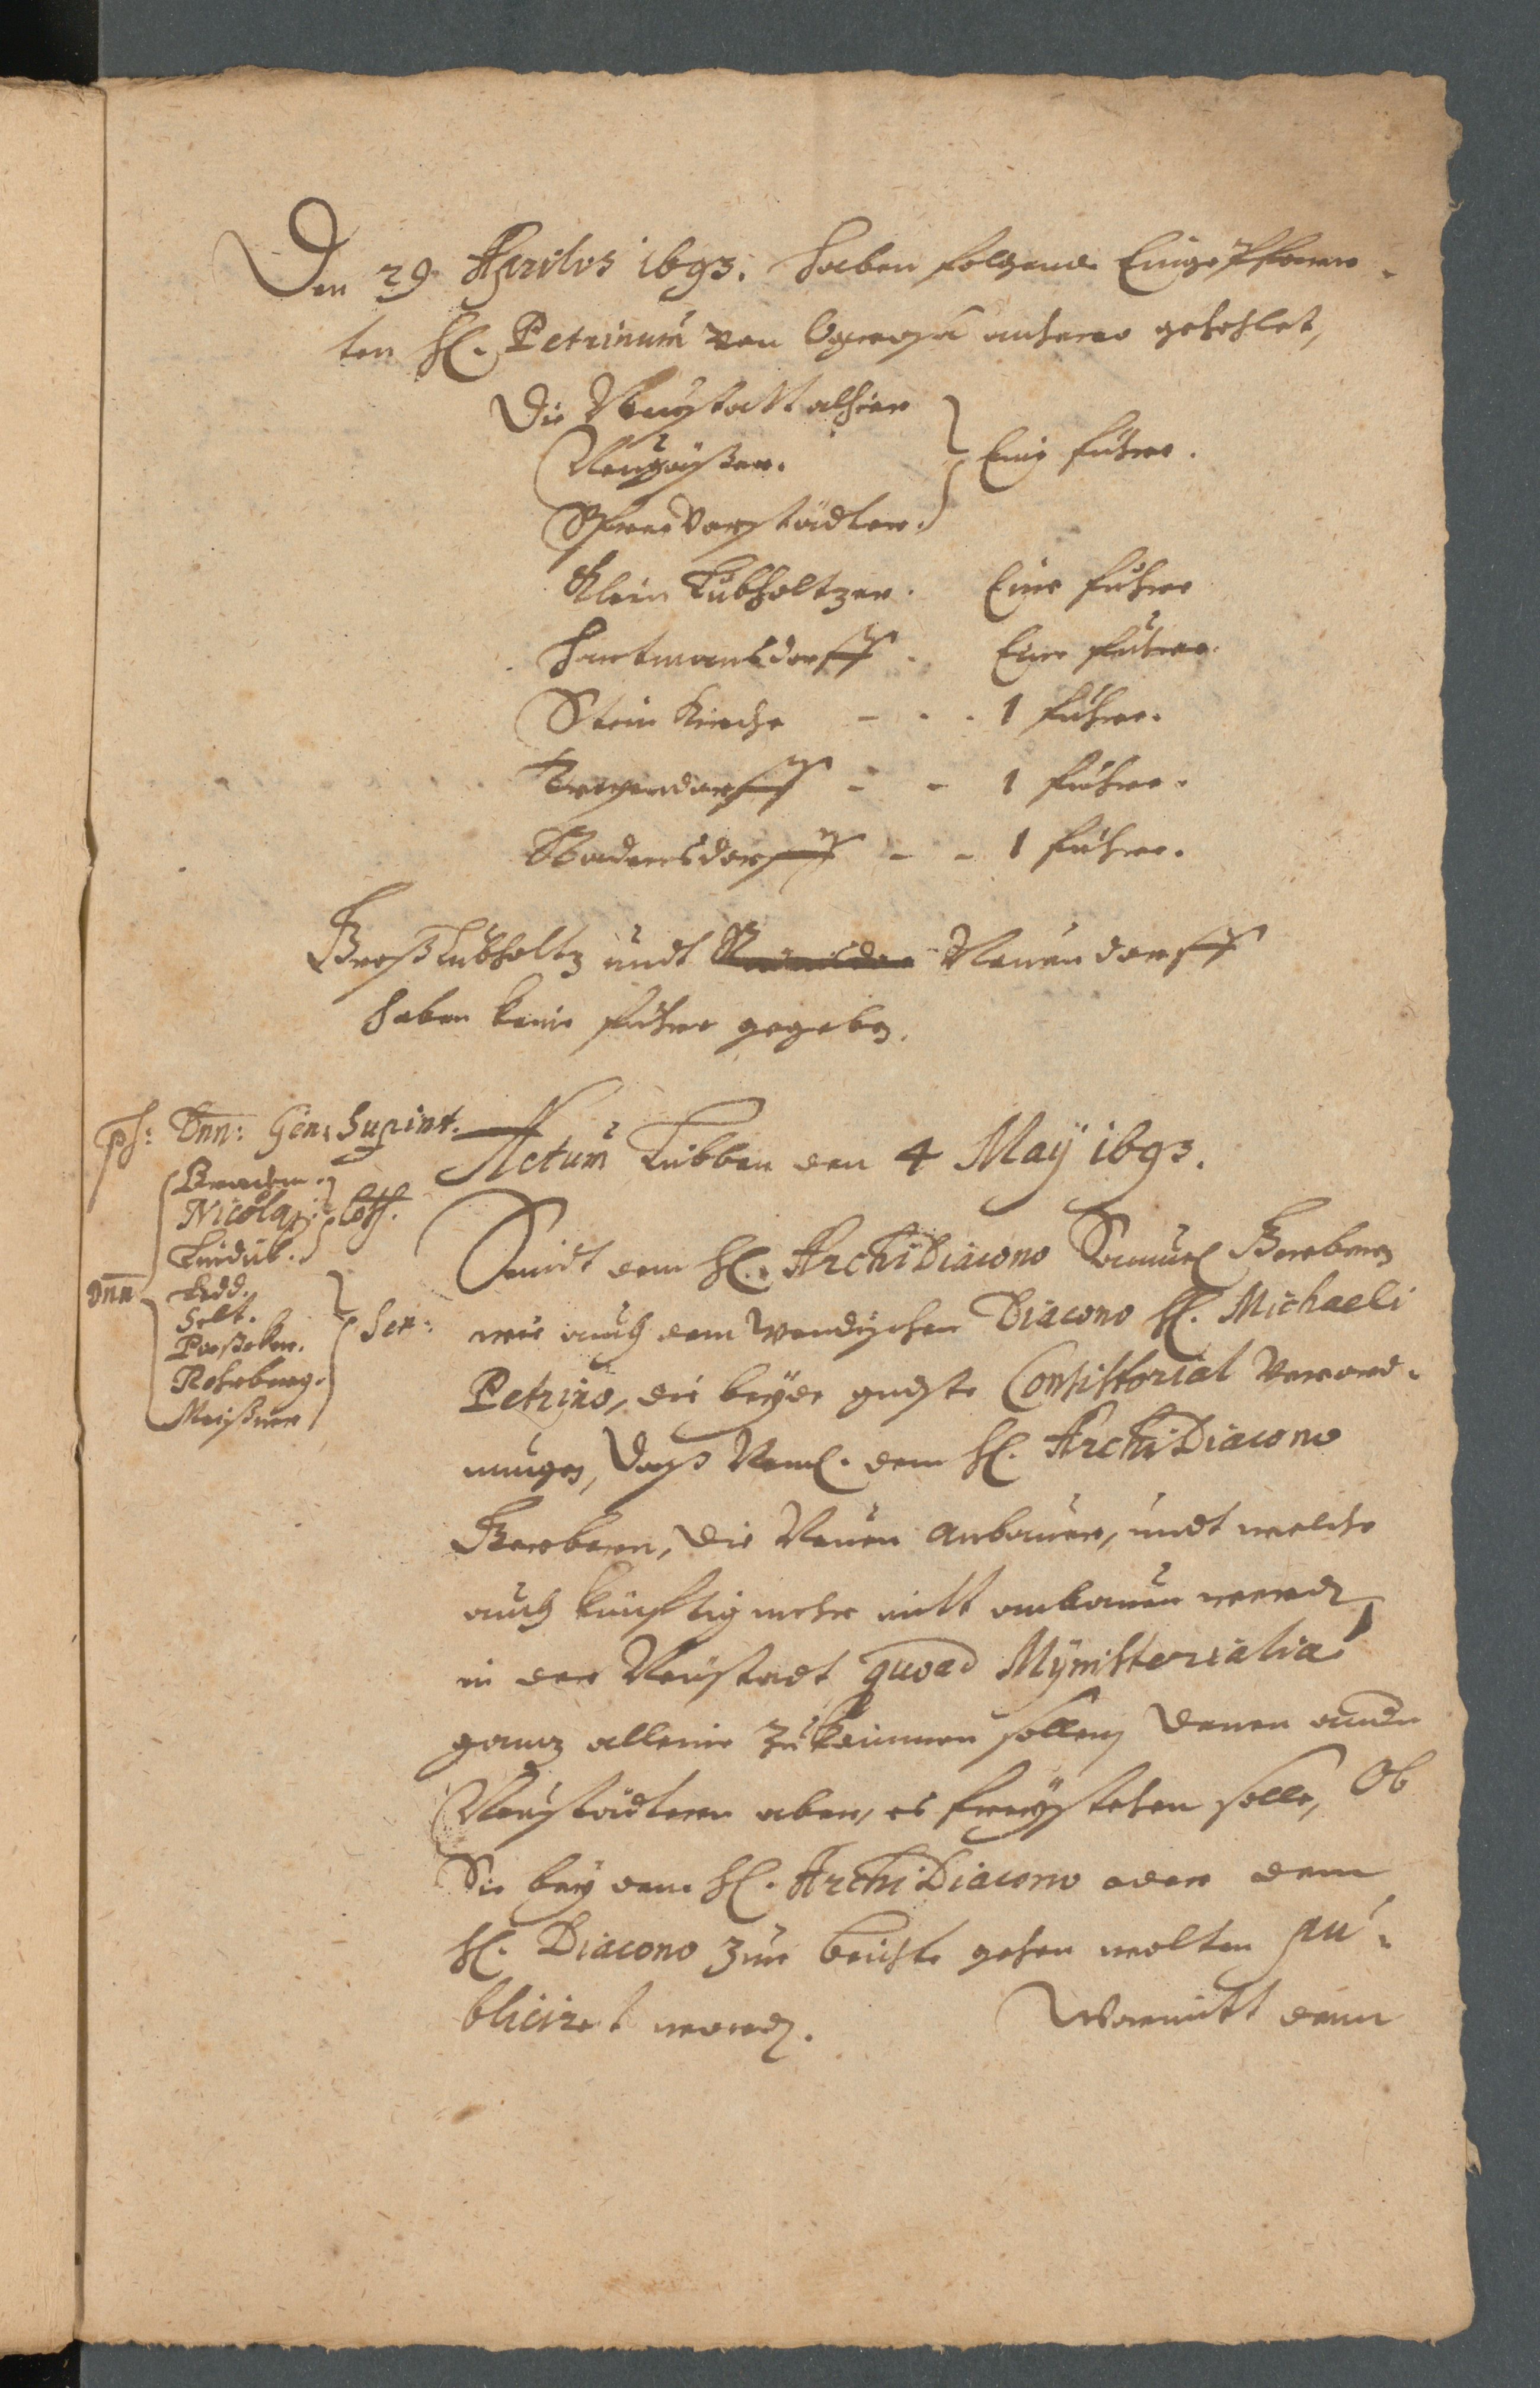 Den 29 Aprilis 1693. haben folgende Eingepfarr-
ten H. Petrinum von Ogrosa anhero gehohlet,
Die Neustatt alhier
Neugäßer. } Eine fuhre.
Spreevorstädter.
Klein Lubholtzer. Eine fuhre
Hartmansdorff. Eine fuhre.
Stein Kirche - - - 1 fuhre.
Treppendorff - - 1 fuhre.
Radensdorff - - 1 fuhre.
Groß Lubholtz undt Neuendorff
haben keine fuhre gegeben.
ps: Dnn: Gen: Supint.
Nicolai } Coss.
Dnn
Selt.
Rohrberg. } Sen:
Meißner
Actum Lübben den 4 Maÿ 1693.
Sindt dem H. ArchiDiacono Samuel Gerbern
wie auch dem wendischen Diacono H. Michaeli
Petrino, die beÿde gndste Consistorial Verord-
nungen, daß Neml. dem H. ArchiDiacono
Gerbern, die Neuen Anbauer, undt welche
auch künftig mehr mitt anbauen werden
in der Neustadt quoad Mÿnisterialia
gantz alleine zukommen sollen, denen andern
Neustädtern aber, es freÿ stehen solle, Ob
Sie beÿ dem H. ArchiDiacono oder dem
H. Diacono zur beichte gehen wolten pu-
bliciret worden. Womitt denn